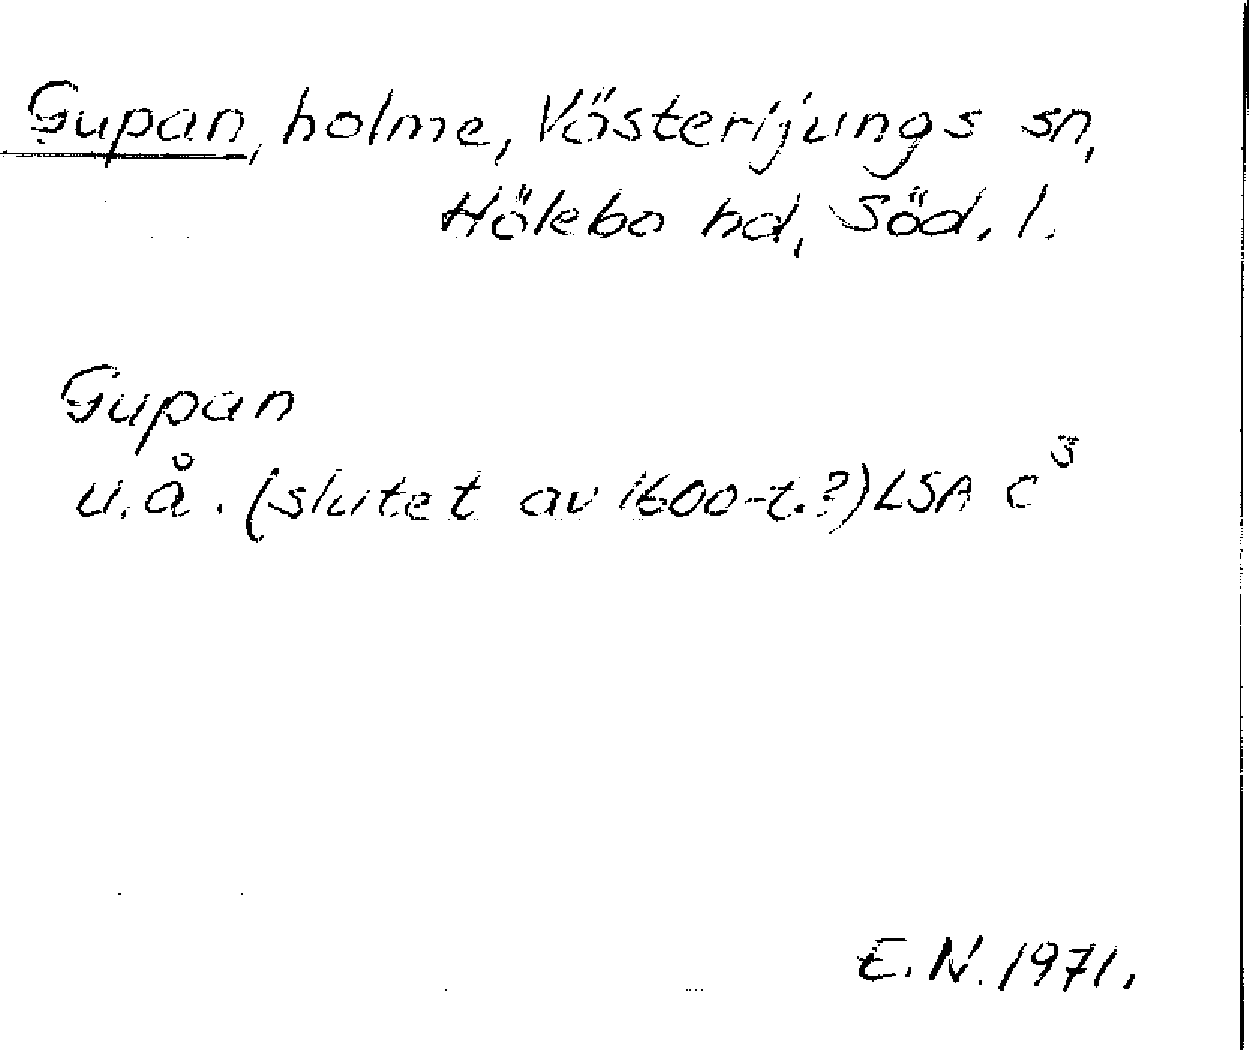 Gupan, holme, Västerljungs sn,
Hölebo hd, Söd. l.
Gupan
u.å. (slutet av 1600-t.?) LSA C³
E.N. 1971.